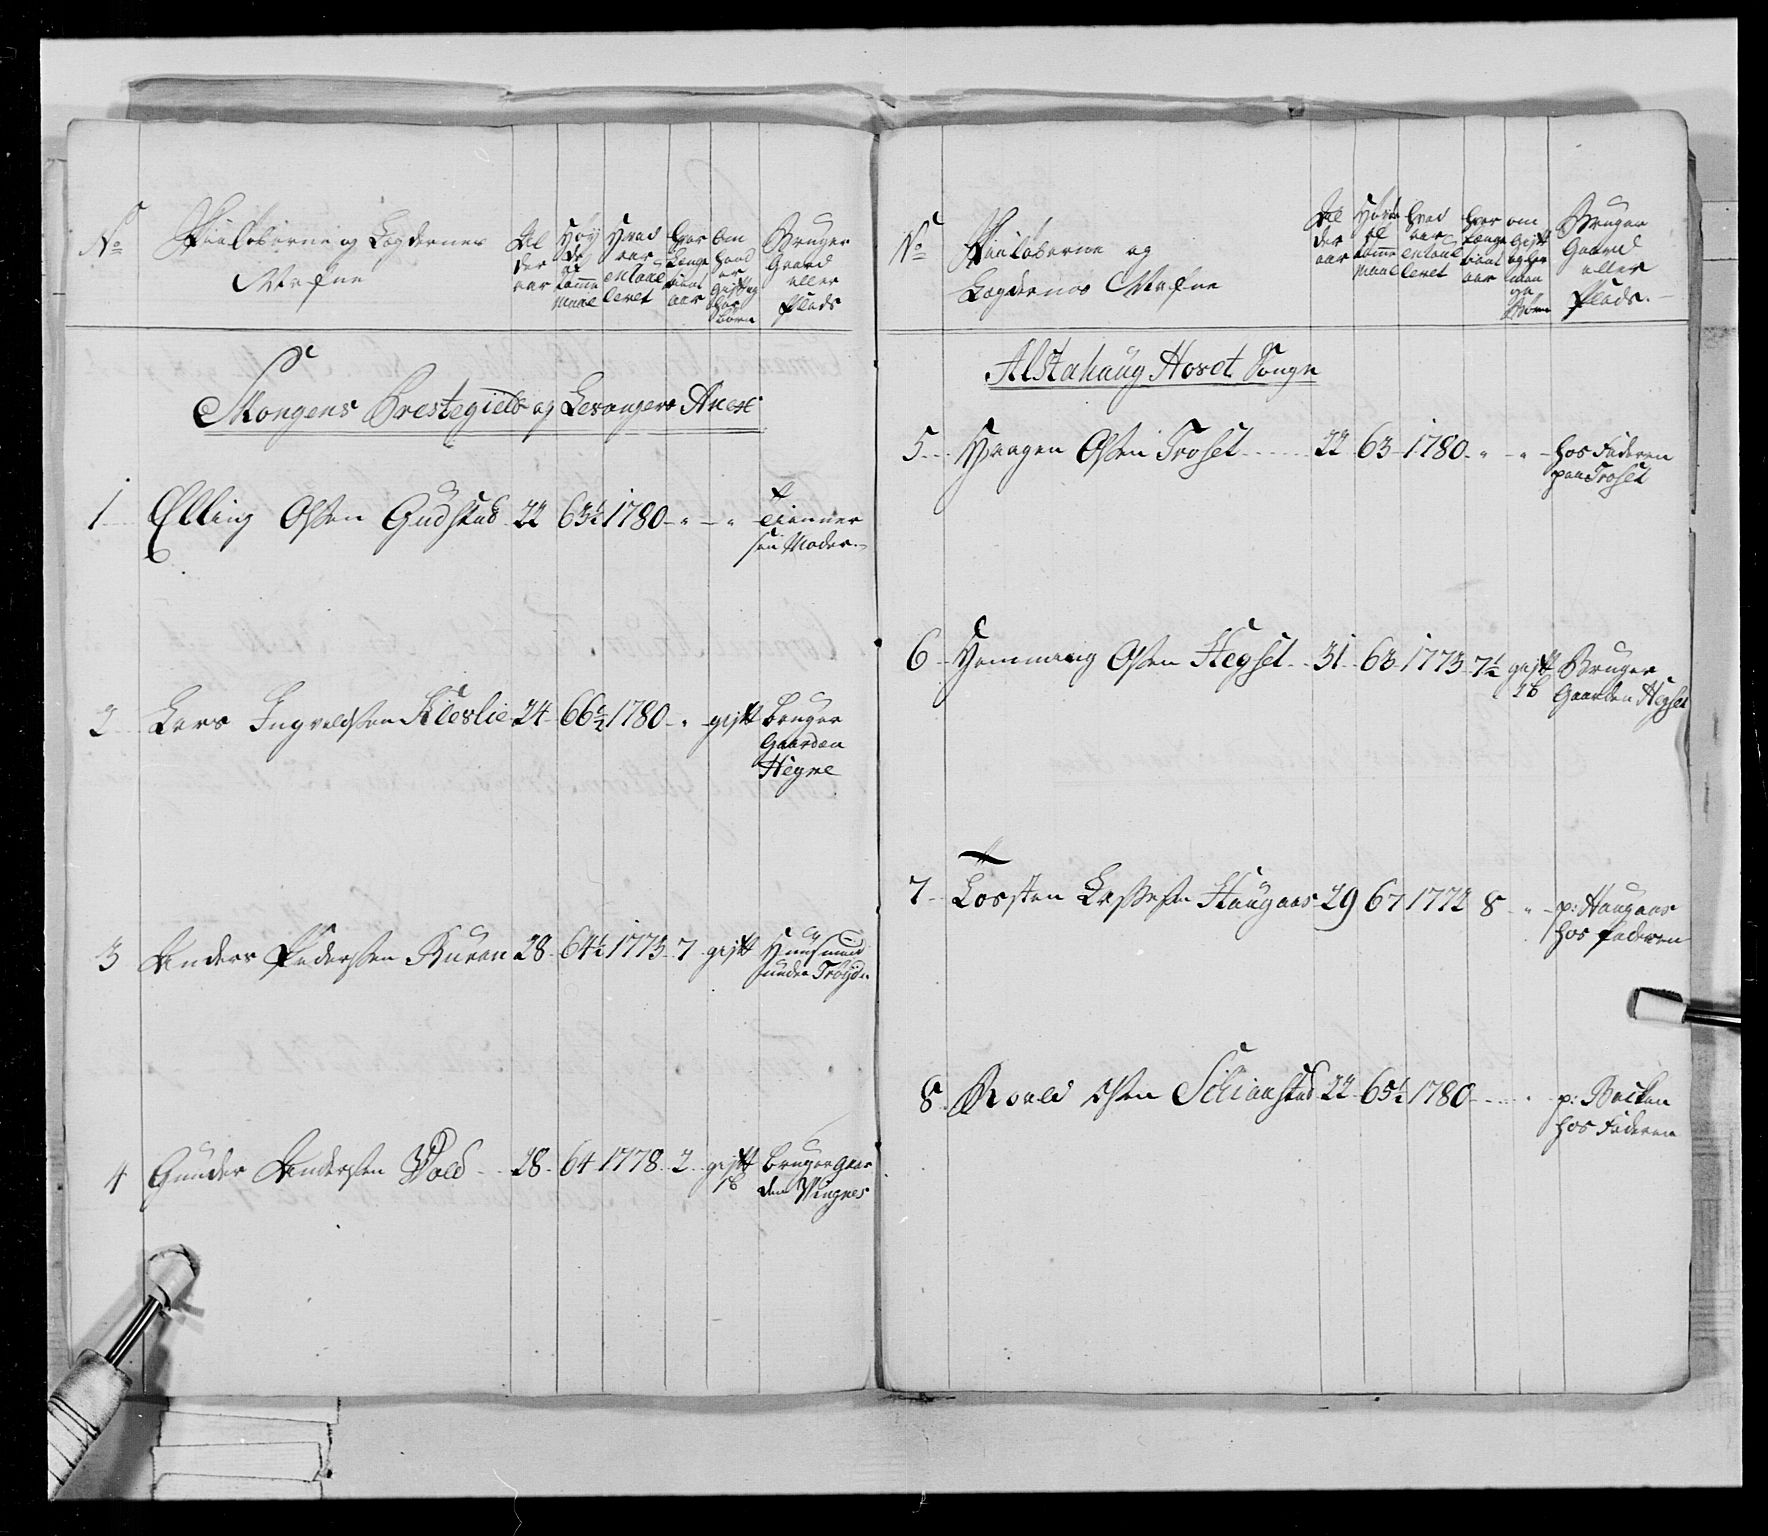 No
Skieløberne og Lægdernes
Nafne
Al
der
aar
Høy
de
af
tomme
Maal
Hvad
aar
enroul
leret
hvor
længe
tient
aar
Om
hand
er
gift og
har
børn
Bruger
Gaard
eller
Plads
Skongens Prestegield og Levangers Anex
1 Elling Olsen Gudstad 22 63½ 1780 " " Tienner
sin Moder
2 Lars Ingvaldsen Kleslie 24 66½ 1780 " gift bruger
Gaarden
Hegne
3 Anders Pedersen Buran 28 64½ 1773 7 gift Huusmand
under
4 Gunder Andersen Vold 28 64 1778 2 gift bruger Gaar
1 b den Vingnes
No
Skieløberne og
Lægdernes Nafne
Al
der
aar
Høyde
af
tomme
Maal
hvad
aar
enroul
leret
hvor
længe
tient
aar
om
Gift
og har
mange
Børn
Bruger
Gaard
eller
Plads
Alstahaug Hovet Sogn
5 Haagen Olsen Troset 22 63 1780 " " hos Faderen
paa Troset
6 Hemming Olsen Hegset 31 63 1773 7½ gift Bruger
1 b Gaarden Hegset
7 Torsten Lassesen Haugaas 29 67 1772 8 " p: Haugaas
hos faderen
8 Roald Olsen Schianstad 22 65½ 1780 " p: Backen
hos Faderen